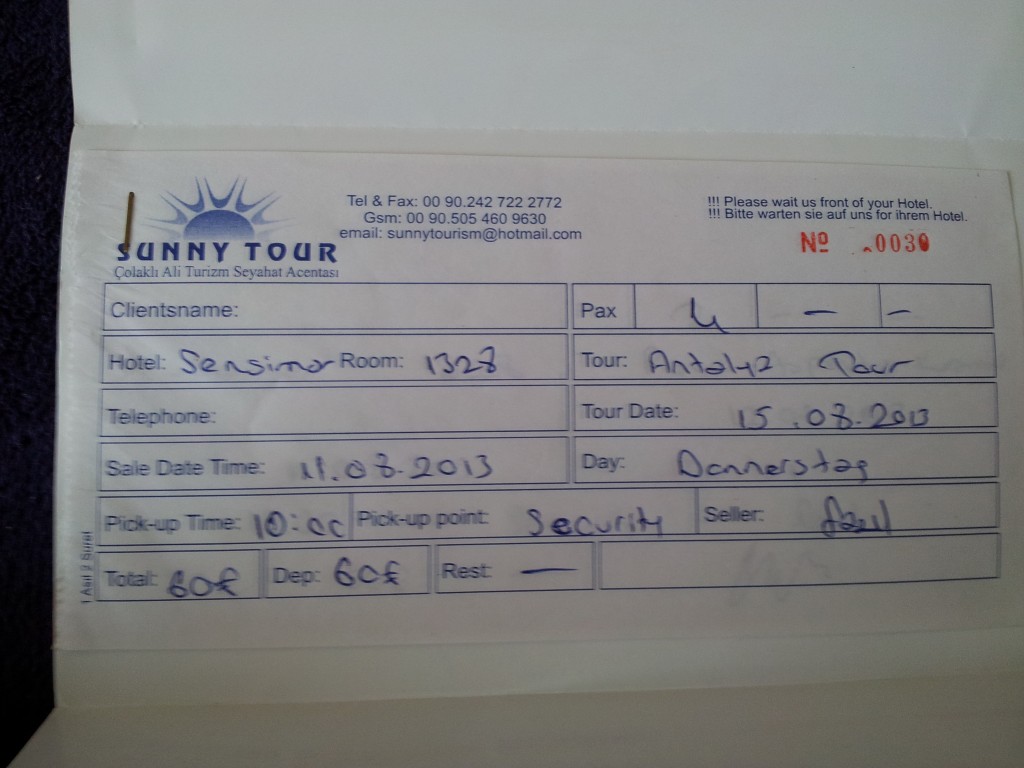 Tel & Fax: 00 90.242 722 2772
Gsm: 00 90.505 460 9630
email: sunnytourism@hotmail.com
!!! Please wait us front of your Hotel.
!!! Bitte warten sie auf uns for ihrem Hotel.
SUNNY TOUR
Çolaklı Ali Turizm Seyahat Acentası
Nº 0030
Clientsname:
Pax 4 — —
Hotel: Sensimar Room: 1328
Tour: Antalya Tour
Telephone:
Tour Date: 15.08.2013
Sale Date Time: 11.08.2013
Day: Donnerstag
Pick-up Time: 10:00 Pick-up point: Security Seller:
Total: 60£ Dep: 60£ Rest: —